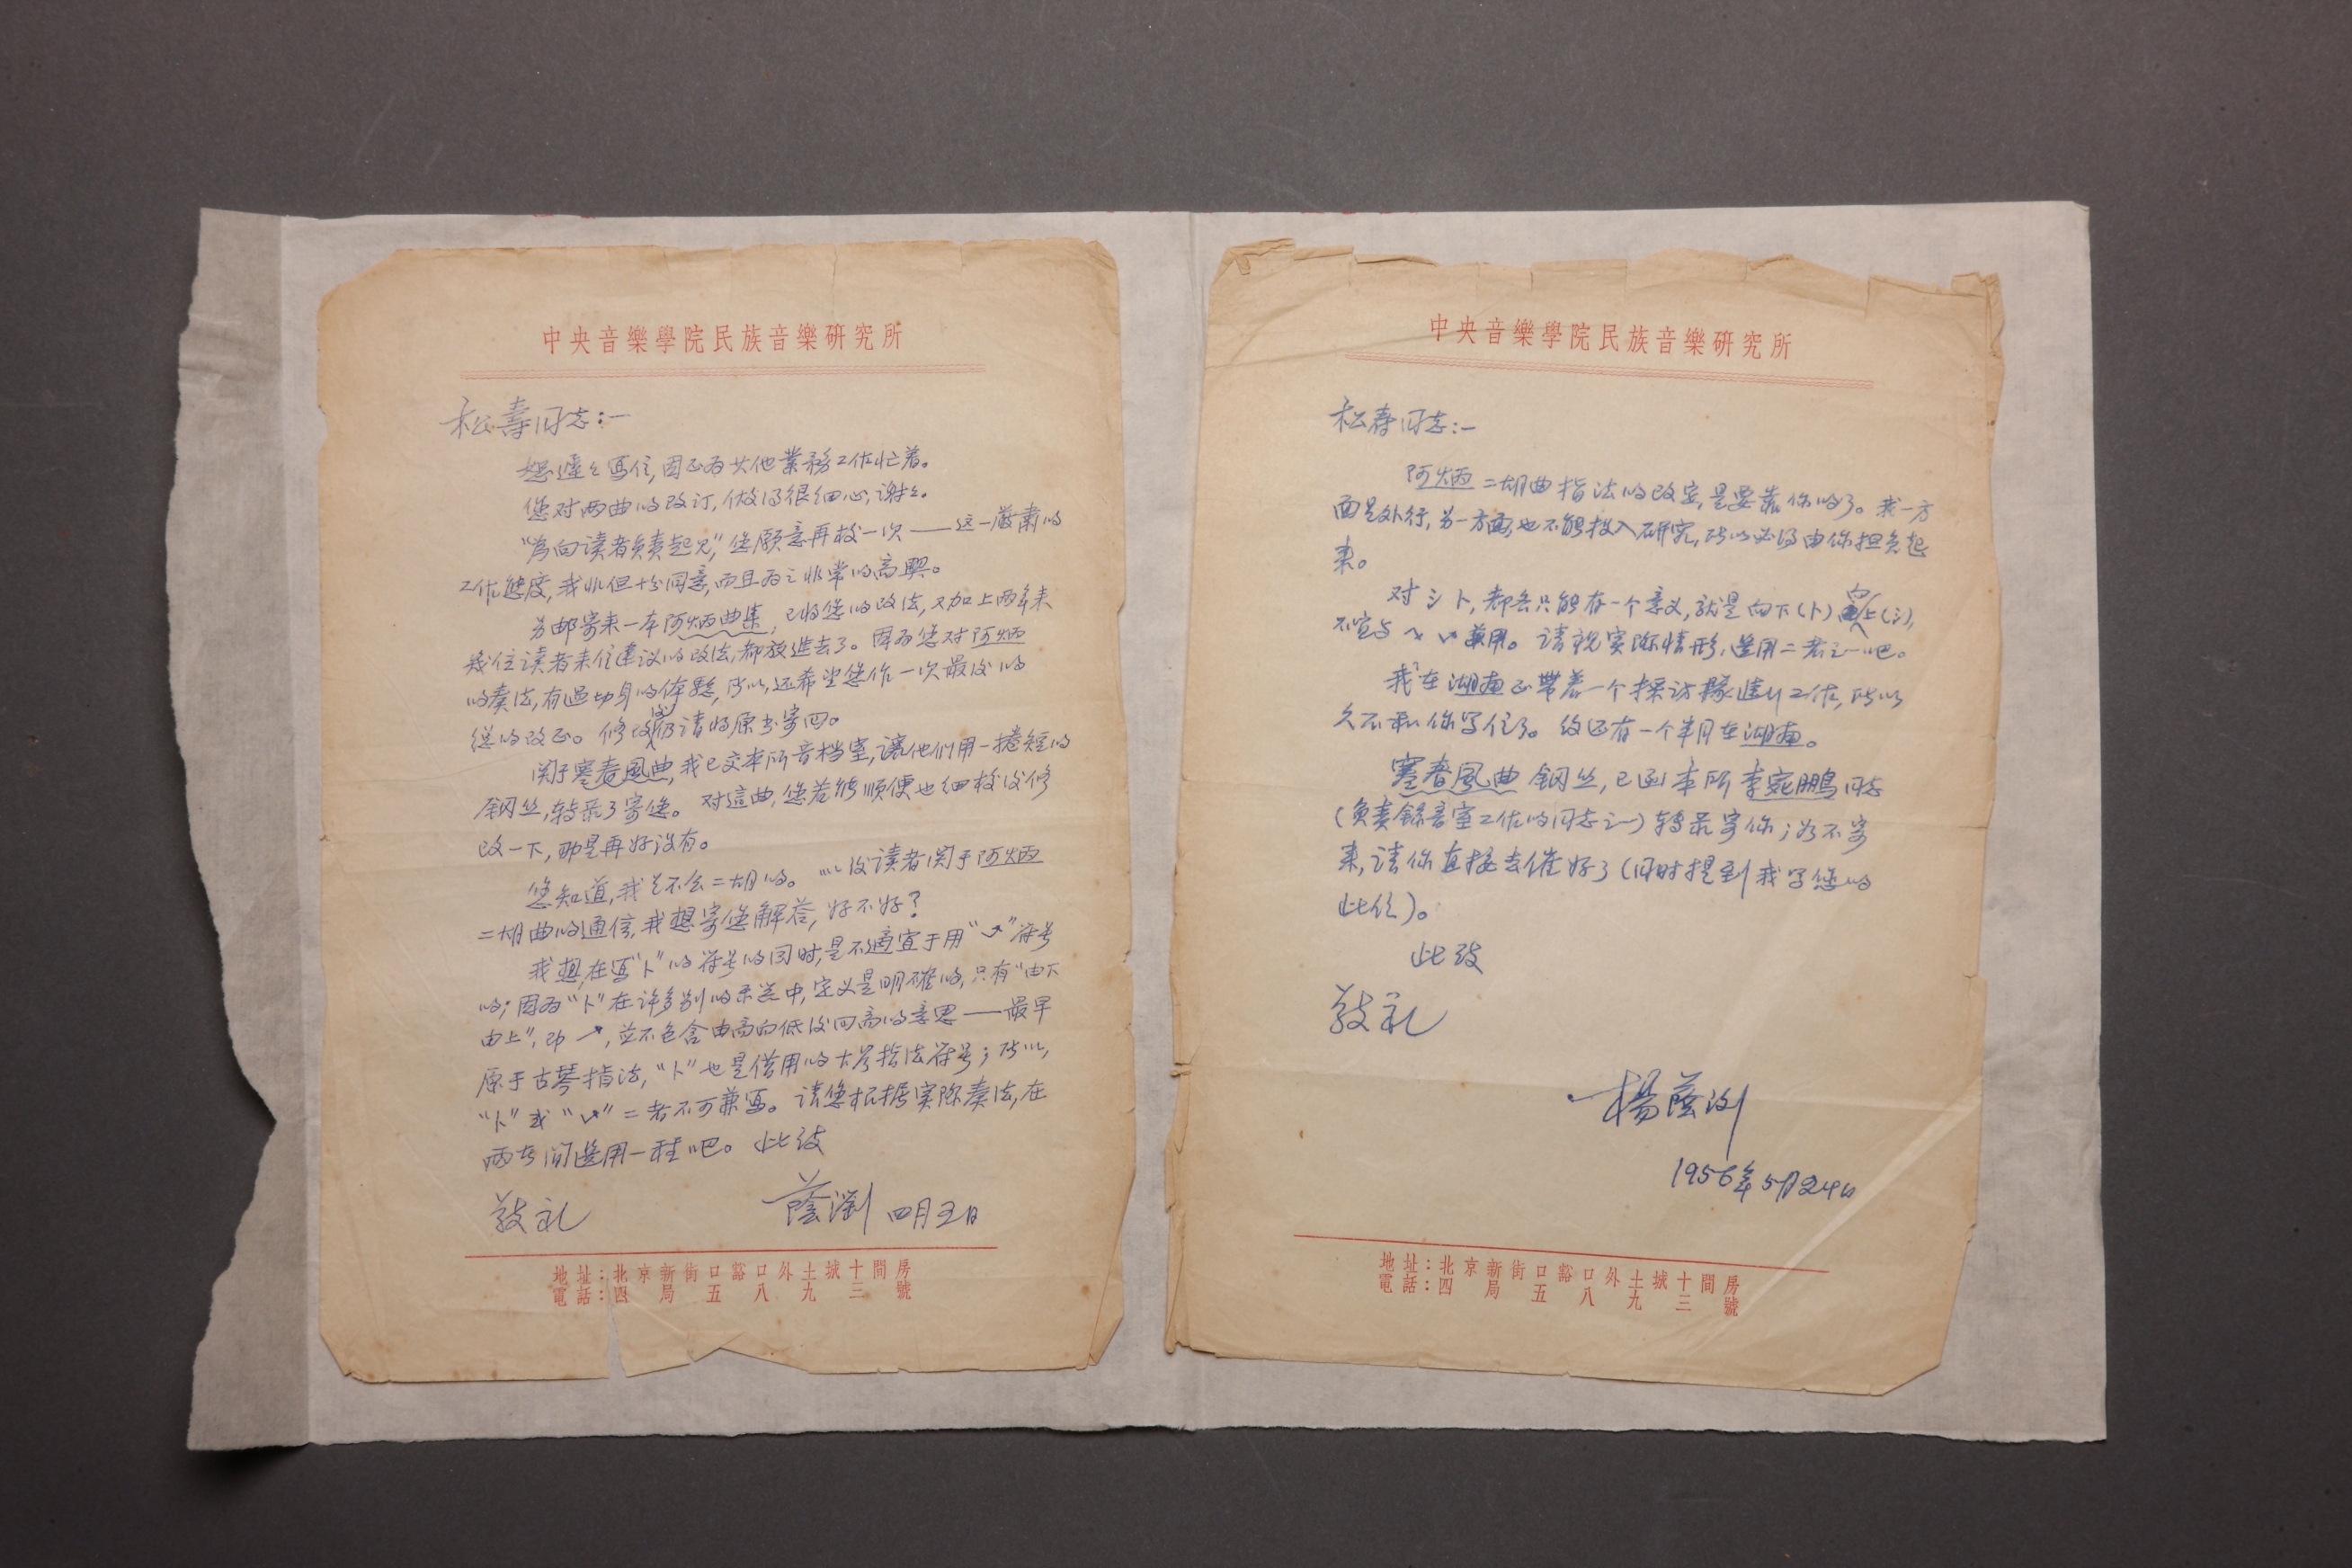 中央音樂學院民族音樂研究所
松壽同志：—
恕遲遲寫信，因正为其他業務工作忙着。
您对两曲的改订，做得很细心，谢谢。
“为向读者负责起见”，您願意再校一次——这一嚴肃的
工作態度，我非但十分同意，而且为之非常的高興。
另邮寄来一本阿炳曲集，已将您的改法，又加上两年来
幾位读者来信建议的改法，都放進去了。因为您对阿炳
的奏法，有過切身的体驗，所以，还希望您作一次最後的
总的改正。修改後仍请将原书寄回。
関于寒春風曲，我已交本所音档室，讓他們用一捲短的
鋼丝，轉录了寄您。对這曲，您若能順便也細校後修
改一下，那是再好没有。
您知道，我是不会二胡的。以後读者関于阿炳
二胡曲的通信，我想寄您解答，好不好？
我想，在寫“卜”的符号的同时，是不適宜于用“⤻”符号
的；因为“卜”在许多别的乐谱中，定义是明確的，只有“由下
由上”，即↗，並不包含由高向低後回高的意思——最早
原于古琴指法，“卜”也是借用的古琴指法符号；所以，
“卜”或“⤻”二者不可兼寫。请您根据实际奏法，在
两者间選用一种吧。此致
敬礼
蔭瀏 四月五日
地址：北京新街口豁口外土城十間房
電話：四局五八九三號
中央音樂學院民族音樂研究所
松壽同志：—
阿炳二胡曲指法的改定，是要靠你的了。我一方
面是外行，另一方面，也不能投入研究，所以必得由你担负起
来。
对氵卜，都各只能有一个意义，就是向下（卜）向上（氵），
不宜与兼用。请視实际情形，選用二者之一吧。
我在湖南正带着一个採访隊進行工作，所以
久不和你写信了。约还有一个半月在湖南。
寒春風曲鋼丝，已函本所李宛鵬同志
（负责錄音室工作的同志之一）轉录寄你；如不寄
来，请你直接去催好了（同时提到我写您的
此信）。
此致
敬礼
楊蔭浏
1956年5月24日
地址：北京新街口豁口外土城十間房
電話：四局五八九三號